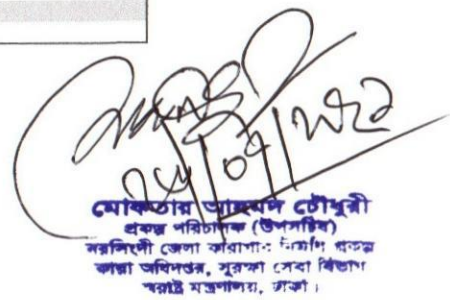 মোকতার আহমেদ চৌধুরী
প্রকল্প পরিচালক (উপসচিব)
নরসিংদী জেলা কারাগার নির্মাণ প্রকল্প
কারা অধিদপ্তর, সুরক্ষা সেবা বিভাগ
স্বরাষ্ট্র মন্ত্রণালয়, ঢাকা।